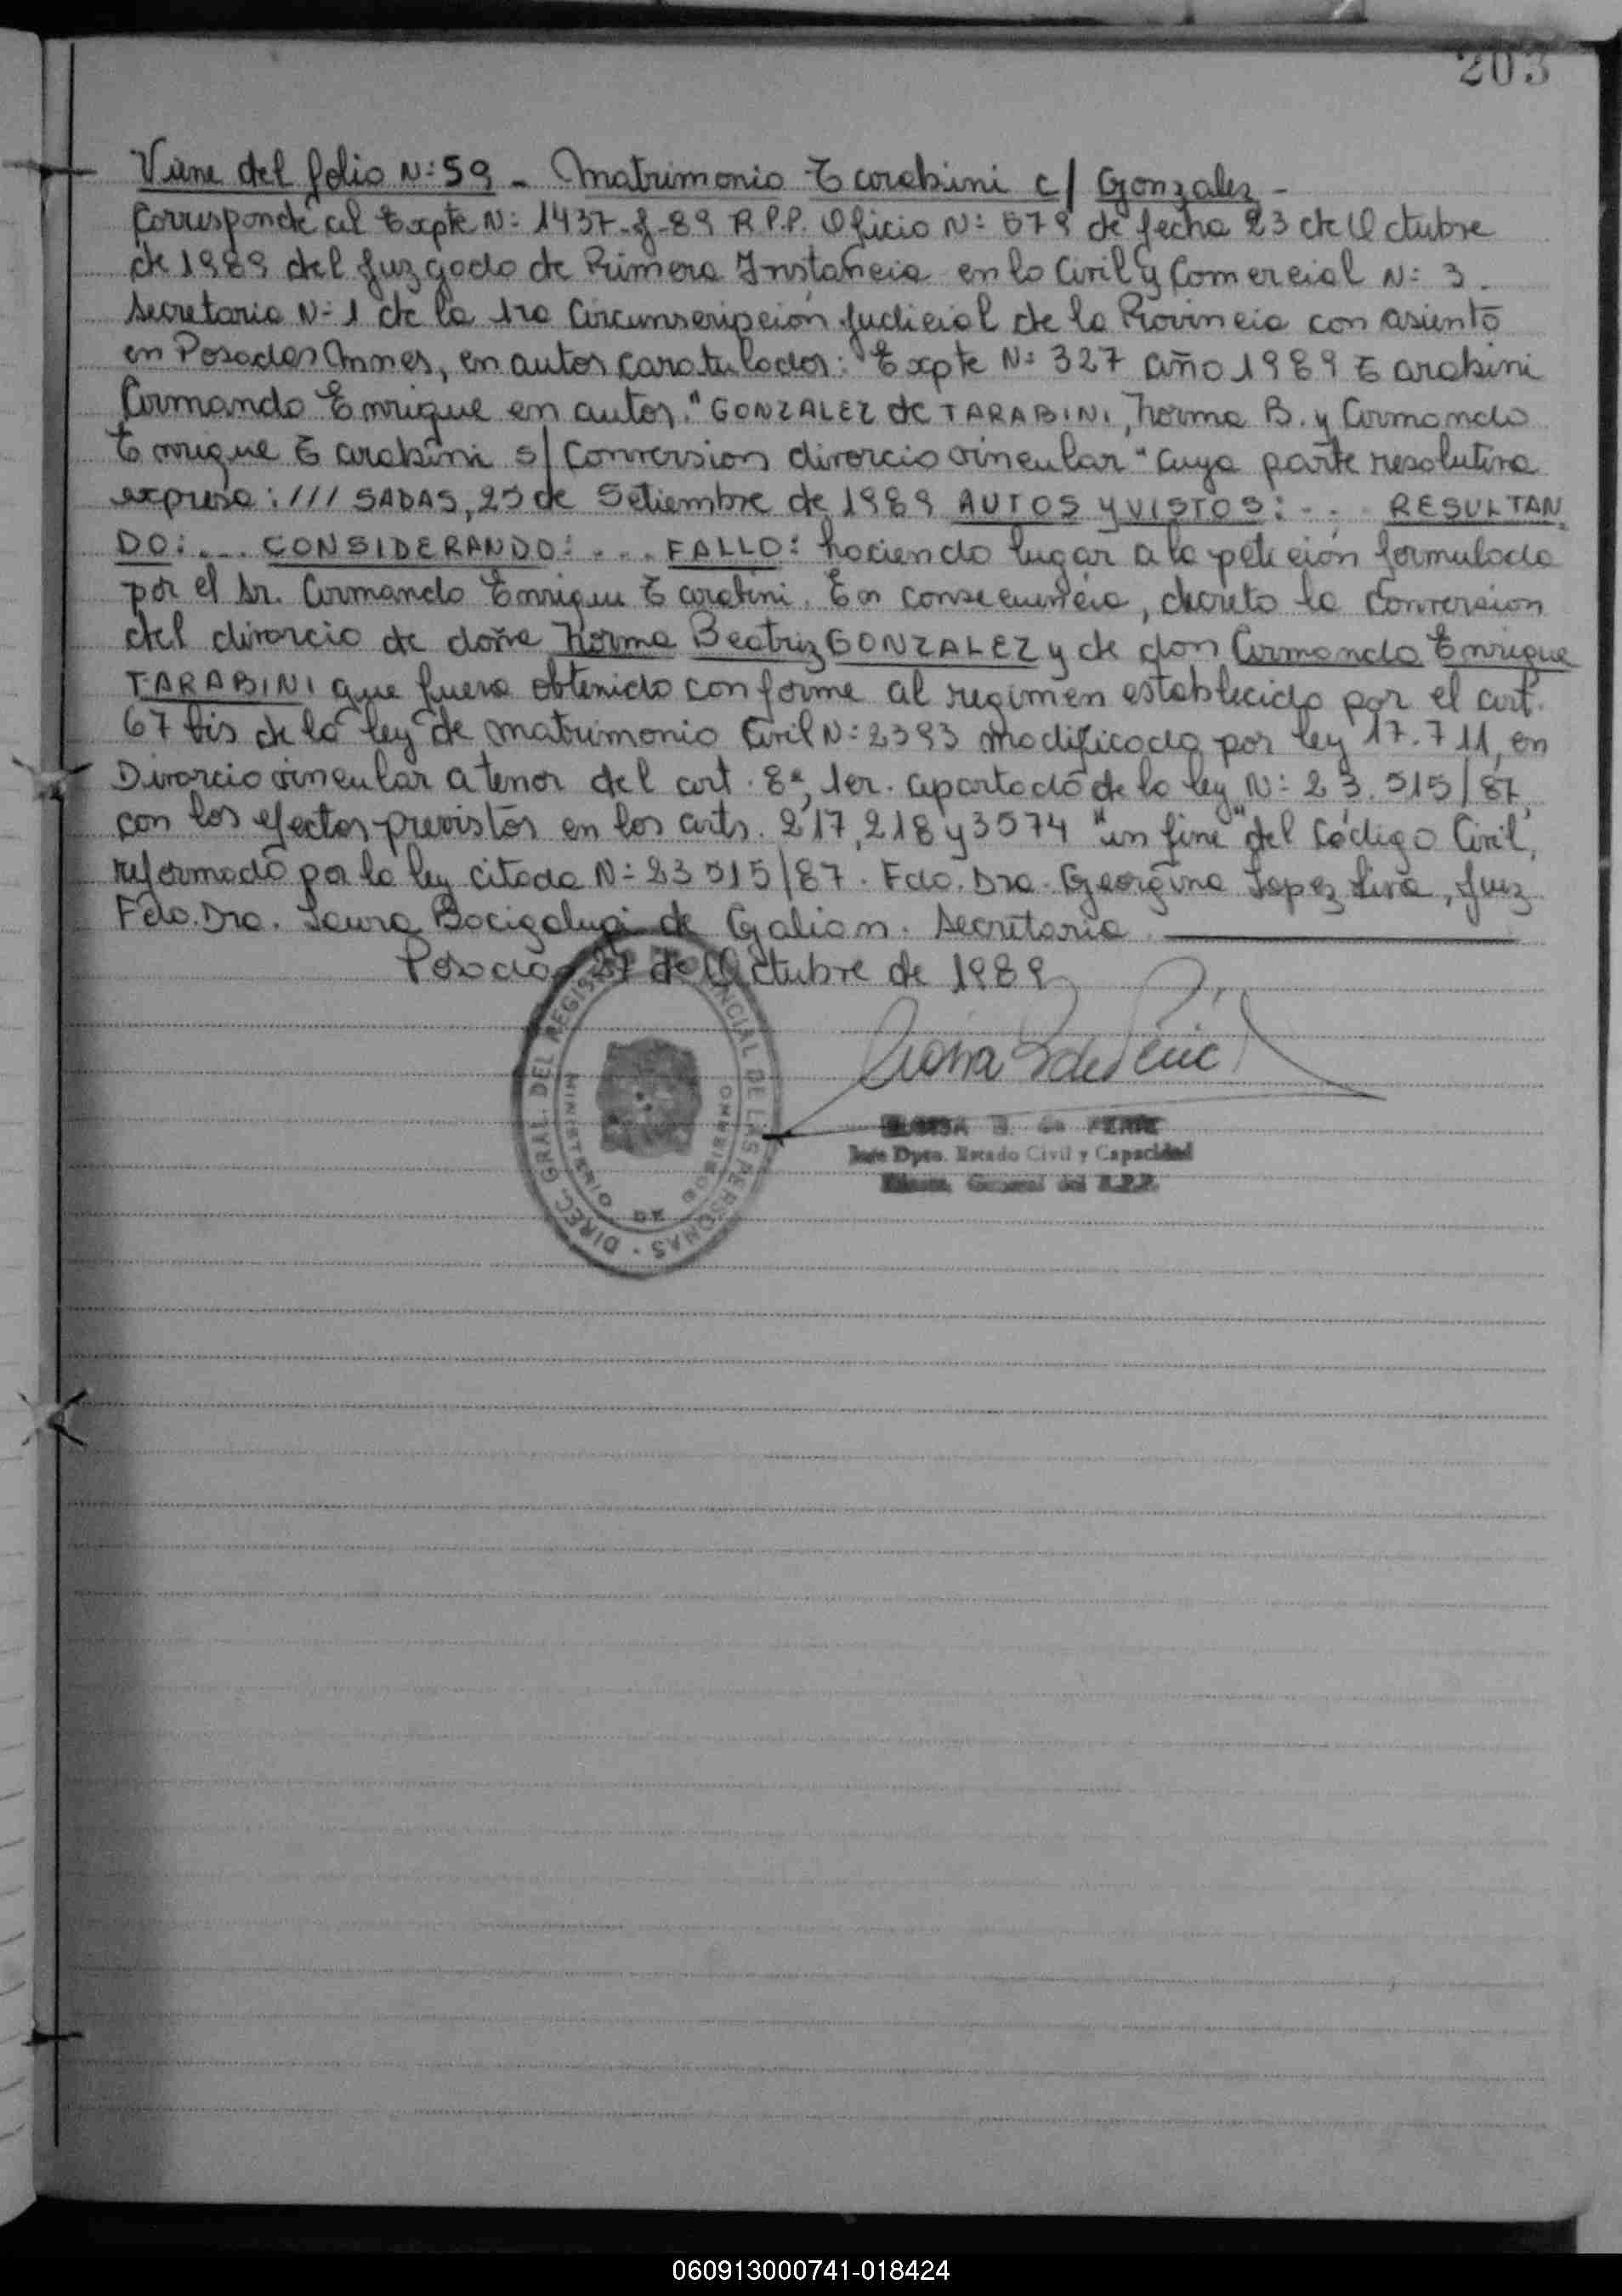 203
Viene del folio N: 59 - Matrimonio Tarabini c/ Gonzalez -
Corresponde al Expte N: 1437-J-89 R.P.P. Oficio N: 579 de fecha 23 de Octubre
de 1989 del Juzgado de Primera Instancia en lo Civil y Comercial N: 3.
Secretaria N: 1 de la 1ra Circunscripción Judicial de la Provincia con asiento
en Posadas Mnes, en autos caratulados: "Expte N: 327 año 1989 Tarabini
Armando Enrique en autos: "GONZALEZ de TARABINI, Norma B. y Armando
Enrique Tarabini s/ Conversion divorcio vincular" cuya parte resolutiva
expresa: /// SADAS, 25 de Setiembre de 1989 AUTOS y VISTOS: ... RESULTAN
DO: ... CONSIDERANDO: ... FALLO: haciendo lugar a la petición formulada
por el Sr. Armando Enrique Tarabini. En consecuencia, decreto la Conversion
del divorcio de doña Norma Beatriz GONZALEZ y de don Armando Enrique
TARABINI que fuera obtenido conforme al regimen establecido por el art.
67 bis de la ley de matrimonio Civil N: 2393 modificada por ley 17.711, en
Divorcio vincular a tenor del art. 8º, 1er. apartado de la ley N: 23.515/87,
con los efectos previstos en los arts. 217, 218 y 3574 "in fine" del Código Civil,
reformado por la ley citada N: 23515/87. Fdo. Dra. Georgina Lopez Liva, Juez
Fdo. Dra. Laura Bacigalupi de Galian. Secretaria
Posadas 27 de Octubre de 1989
DIREC. GRAL. DEL REGIST PROVINCIAL DE LAS PERSONAS
MINISTERIO DE GOBIERNO
Jefe Dpto. Estado Civil y Capacidad
General del R.P.P.
060913000741-018424